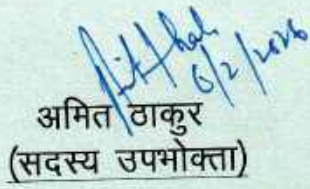 6/2/2026
अमित ठाकुर
(सदस्य उपभोक्ता)